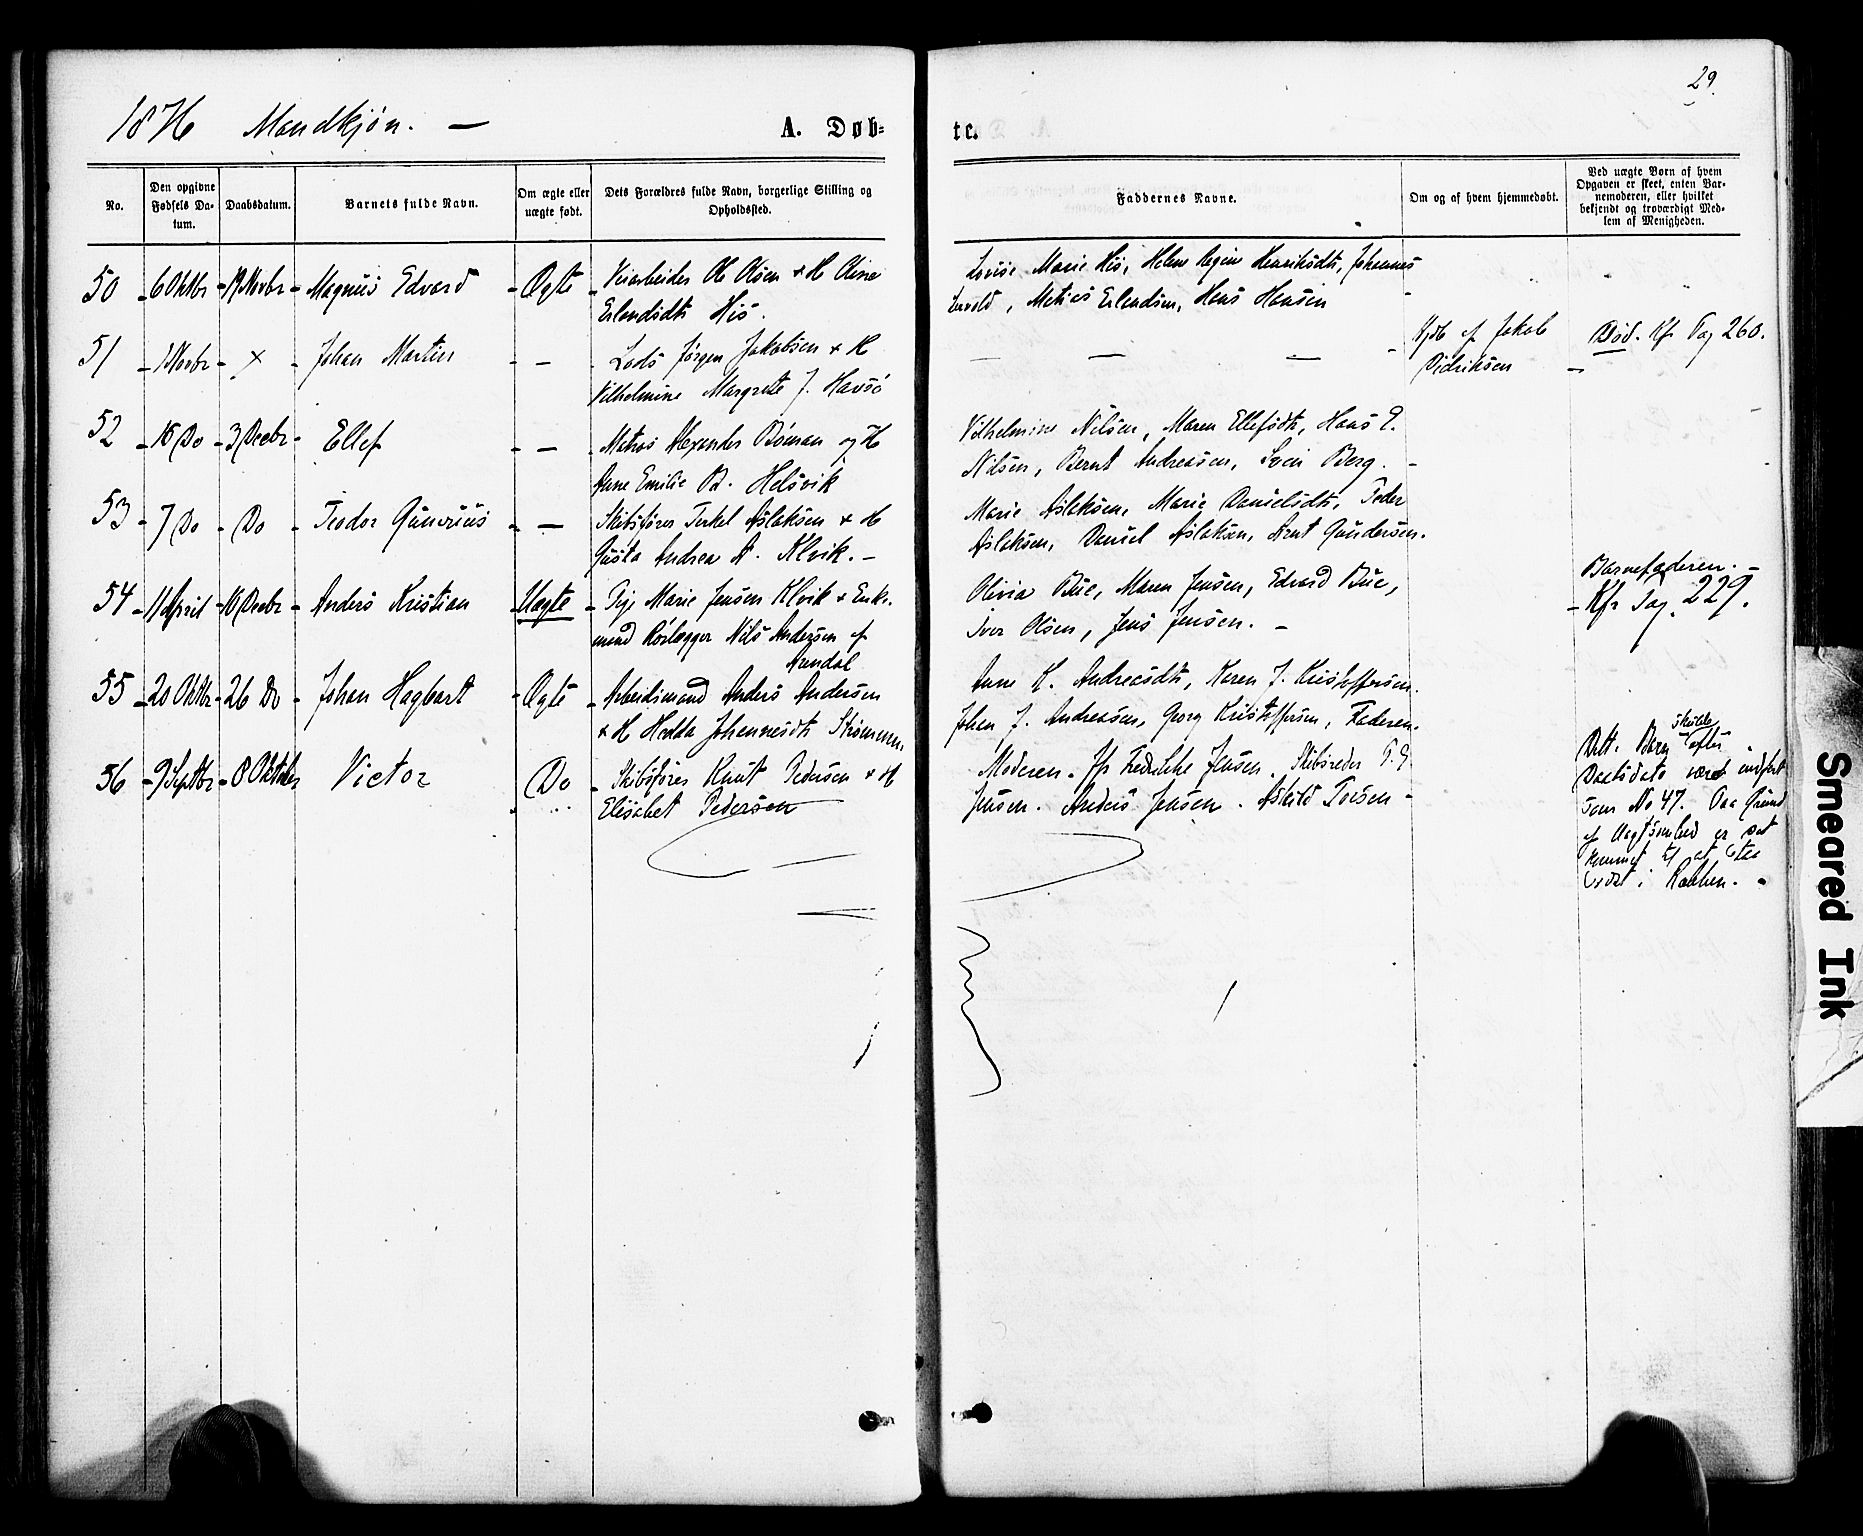 29.
1876 Mandkjøn. —
A. Døb-
te.
No.
Den opgivne Fødsels Da-
tum.
Daabsdatum.
Barnets fulde Navn.
Om ægte eller
uægte født.
Dets Forældres fulde Navn, borgerlige Stilling og
Opholdssted.
Faddernes Navne.
Om og af hvem hjemmedøbt.
Ved uægte Børn af hvem
Opgaven er skeet, enten Bar-
nemoderen, eller hvilket
bekjendt og troværdigt Med-
lem af Menigheden.
50 6 Oktbr 19 Novbr Magnus Edvard Ægte Veiarbeider Ole Olsen & H Oline
Erlendsdtr His.
Lovise Marie His, Helene Regine Henriksdtr, Johannes
Matias Erlendsen, Hans Hansen
51 1 Novbr × Johan Martin — Lods Jørgen Jakobsen & H
Vilhelmine Margrete J. Havsø
— — —
Hjdb af Jakob
Didriksen
Død. Kfr Pag 260.
52 18 Do 3 Decbr Ellef — Matros Alexander Boman og H
Anne Emilie B. Helsvik
Vilhelmine Nilsen, Maren Ellefsdtr, Hans E.
Nilsen, Bernt Andreasen, Svein Berg.
53 7 Do Do Teodor Gunerius — Skibsfører Terkel Aslaksen & H
Gusta Andrea A. Klvik. —
Marie Aslaksen, Marie Danielsdtr, Peder
Aslaksen, Daniel Aslaksen, Arnt Gundersen.
54 11 April 10 Decbr Anders Kristian Uægte Pige Marie Jensen Klvik & Enke-
mand Nils Andersen af
Arendal
Olivia Bue, Maren Jensen, Edvard Bue,
Iver Olsen, Jens Jensen. —
Barnefaderen. —
Kfr Pag. 229.
55 20 Oktbr 26 Do Johan Hagbart Ægte Arbeidsmand Anders Andersen
& H Hedda Johannesdtr Strømmen.
Anne K. Andreasdtr, Karen J. Kristoffersen.
Johan J. Andreasen, Georg Kristoffersen, Faderen.
56 9 Septbr 8 Oktober Victor Do Skibsfører Knut Pedersen & H
Elisabet Pedersen
Moderen. Fr Fredrikke Jensen. Skibsreder P. G
Jensen. Anders Jensen. Askild Toesen —
Dette Barn skulde efter
Daabsdato været indført
som No 47. Paa Grund
af Uagtsomhed er det
kommet til at staa
sidst i Rækken.
Smeared Ink